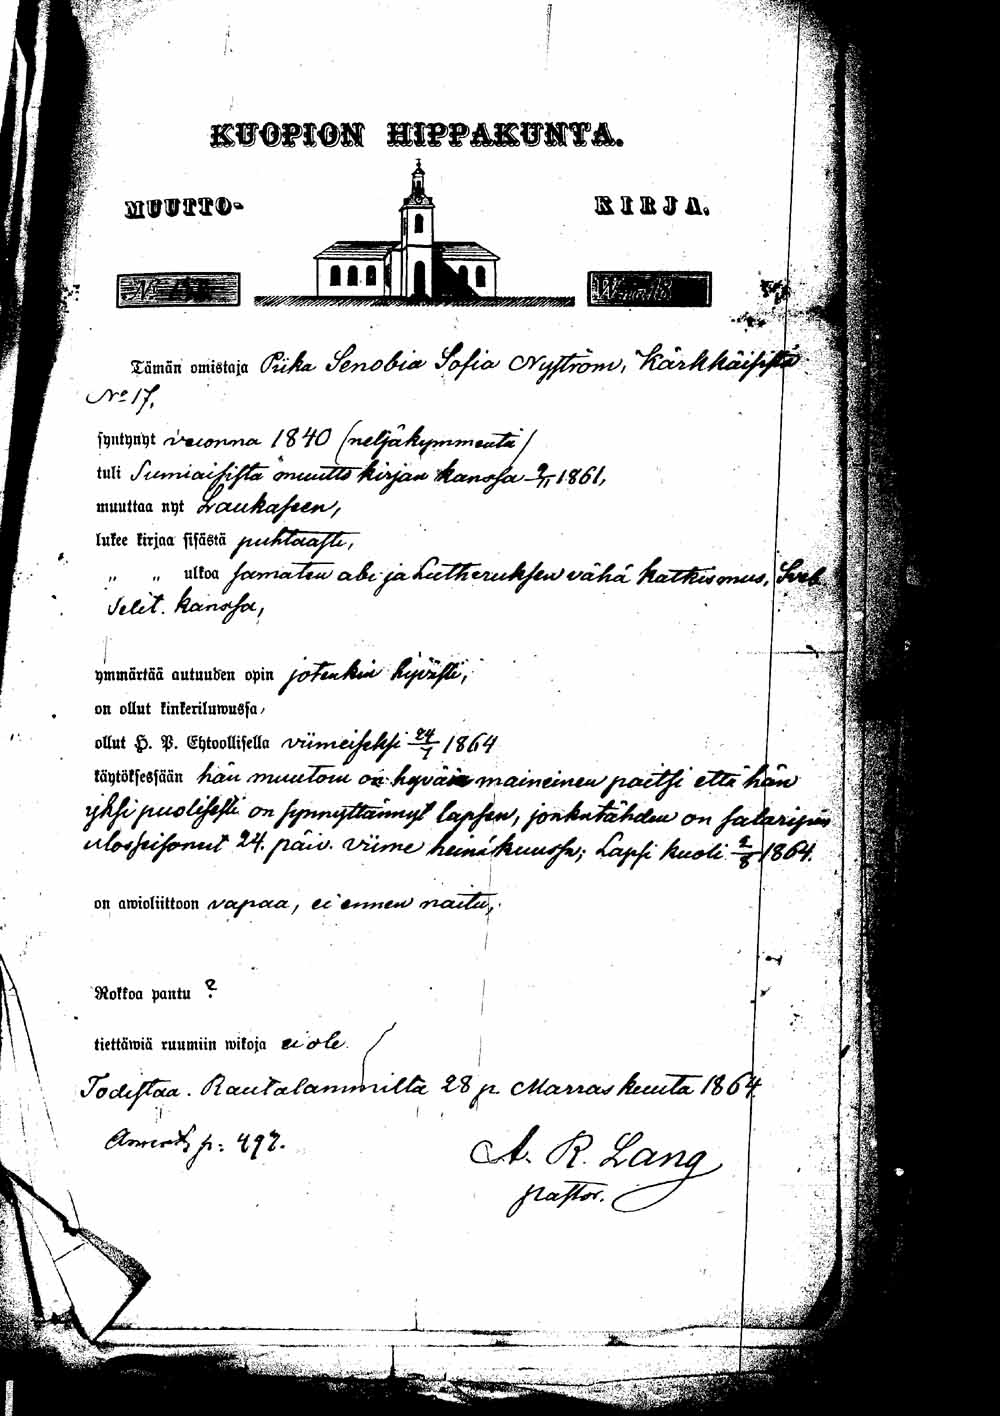 KUOPION HIPPAKUNTA.
MUUTTO- KIRJA.
N:o
Tämän omistaja Piika Senobia Sofia Nyström, Kärkkäisistä
No 17,
syntynyt vuonna 1840 (neljäkymmentä)
tuli Sumiaisista muuttokirjan kanssa 9/11 1861,
muuttaa nyt Laukaseen,
lukee kirjaa sisästä puhtaasti,
„ „ ulkoa samaten abc ja Lutheruksen vähä katkismus, Sveb.
Selit. kanssa,
ymmärtää autuuden opin jotenkin hyvästi,
on ollut kinkeriluwussa,
ollut H. P. Ehtoollisella viimeiseksi 24/7 1864
käytöksessään hän muutoin on hyvään maineinen paitsi että hän
yksi puolisesti on synnyttännyt lapsen, jonkatähden on salaripin
ulosseisonut 24. päiv. viime heinäkuussa; Lapsi kuoli 2/8 1864.
on awioliittoon vapaa, ei ennen naitu,
Rokkoa pantu ?
tiettäwiä ruumiin wikoja ei ole.
Todistaa. Rautalammilta 28 p. Marraskuuta 1864.
p: 497.
A. R. Lang
pastor.